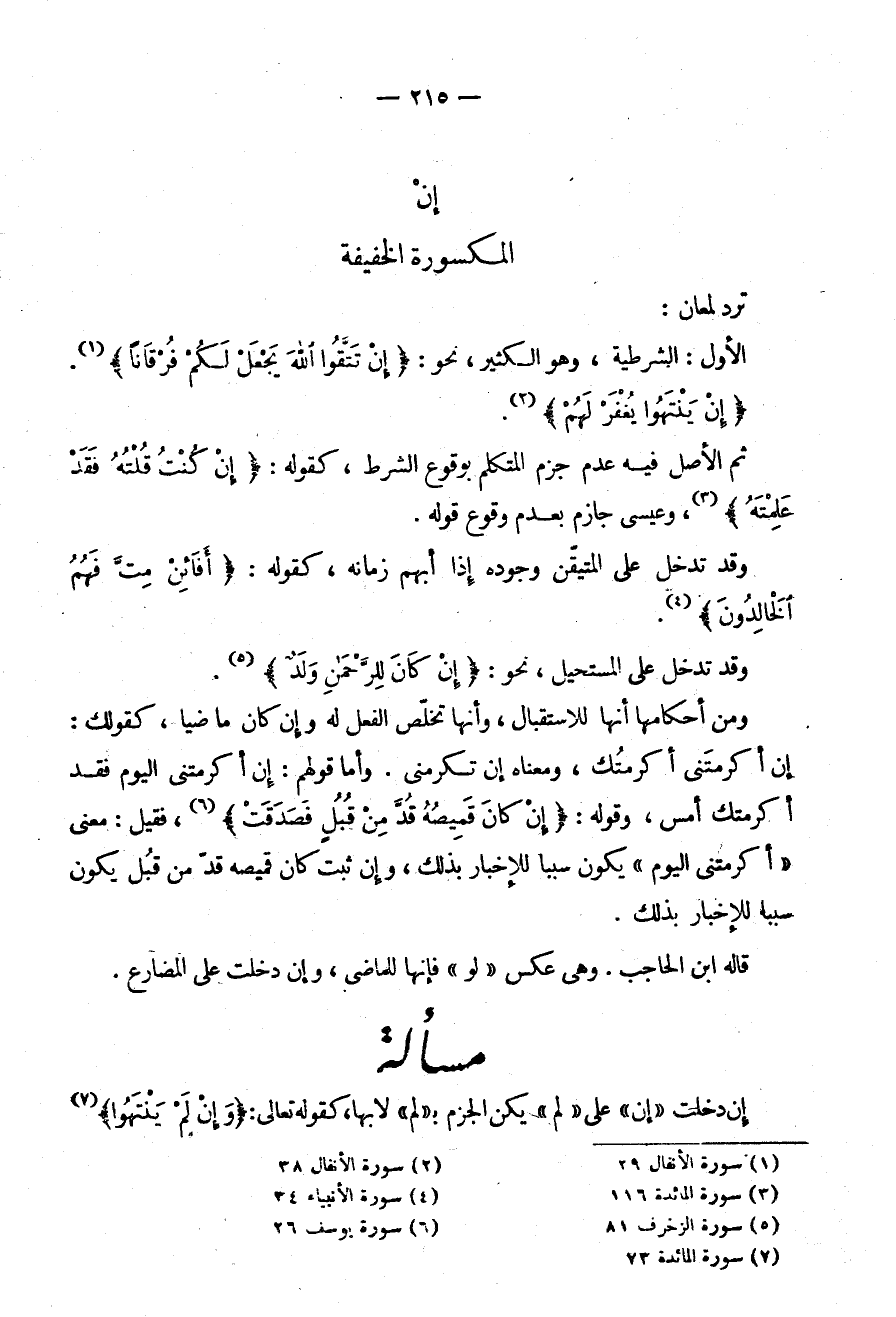 — ٢١٥ —
إِنْ
المكسورة الخفيفة
ترد لمعان :
الأول : الشرطية ، وهو الكثير ، نحو : ﴿ إِنْ تَتَّقُوا ٱللهَ يَجْعَلْ لَكُمْ فُرْقَانًا ﴾ (١) .
﴿ إِنْ يَنْتَهُوا يُغْفَرْ لَهُمْ ﴾ (٢) .
ثم الأصل فيه عدم جزم المتكلم بوقوع الشرط ، كقوله : ﴿ إِنْ كُنْتُ قُلْتُهُ فَقَدْ
عَلِمْتَهُ ﴾ (٣) ، وعيسى جازم بعدم وقوع قوله .
وقد تدخل على المتيقّن وجوده إذا أبهم زمانه ، كقوله : ﴿ أَفَائِنْ مِتَّ فَهُمُ
ٱلْخَالِدُونَ ﴾ (٤) .
وقد تدخل على المستحيل ، نحو : ﴿ إِنْ كَانَ لِلرَّحْمَٰنِ وَلَدٌ ﴾ (٥) .
ومن أحكامها أنها للاستقبال ، وأنها تخلّص الفعل له وإن كان ماضيا ، كقولك :
إن أكرمتَنى أكرمتُك ، ومعناه إن تكرمنى . وأما قولهم : إن أكرمتنى اليوم فقد
أكرمتك أمس ، وقوله : ﴿ إِنْ كَانَ قَمِيصُهُ قُدَّ مِنْ قُبُلٍ فَصَدَقَتْ ﴾ (٦) ، فقيل : معنى
« أكرمتنى اليوم » يكون سببا للإخبار بذلك ، وإن ثبت كان قميصه قدّ من قبُل يكون
سببا للإخبار بذلك .
قاله ابن الحاجب . وهى عكس « لو » فإنها للماضى ، وإن دخلت على المضارع .
مسألة
إن دخلت «إن» على « لم » يكن الجزم بـ«لم» لابها، كقوله تعالى: ﴿وَإِنْ لَمْ يَنْتَهُوا﴾ (٧)
(١) سورة الأنفال ٢٩ (٢) سورة الأنفال ٣٨
(٣) سورة المائدة ١١٦ (٤) سورة الأنبياء ٣٤
(٥) سورة الزخرف ٨١ (٦) سورة يوسف ٢٦
(٧) سورة المائدة ٧٣